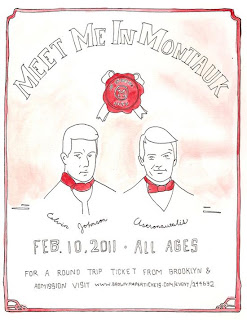 MEET ME IN MONTAUK
Calvin Johnson
Astronautalis
FEB. 10, 2011 · ALL AGES
FOR A ROUND TRIP TICKET FROM BROOKLYN &
ADMISSION VISIT WWW.BROWNPAPERTICKETS.COM/EVENT/